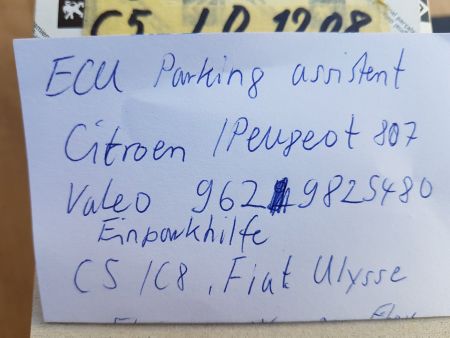 C5 LD 1208
ECU Parking assistent
Citroen /Peugeot 807
Valeo 962 9825480
Einparkhilfe
C5 /C8 , Fiat Ulysse